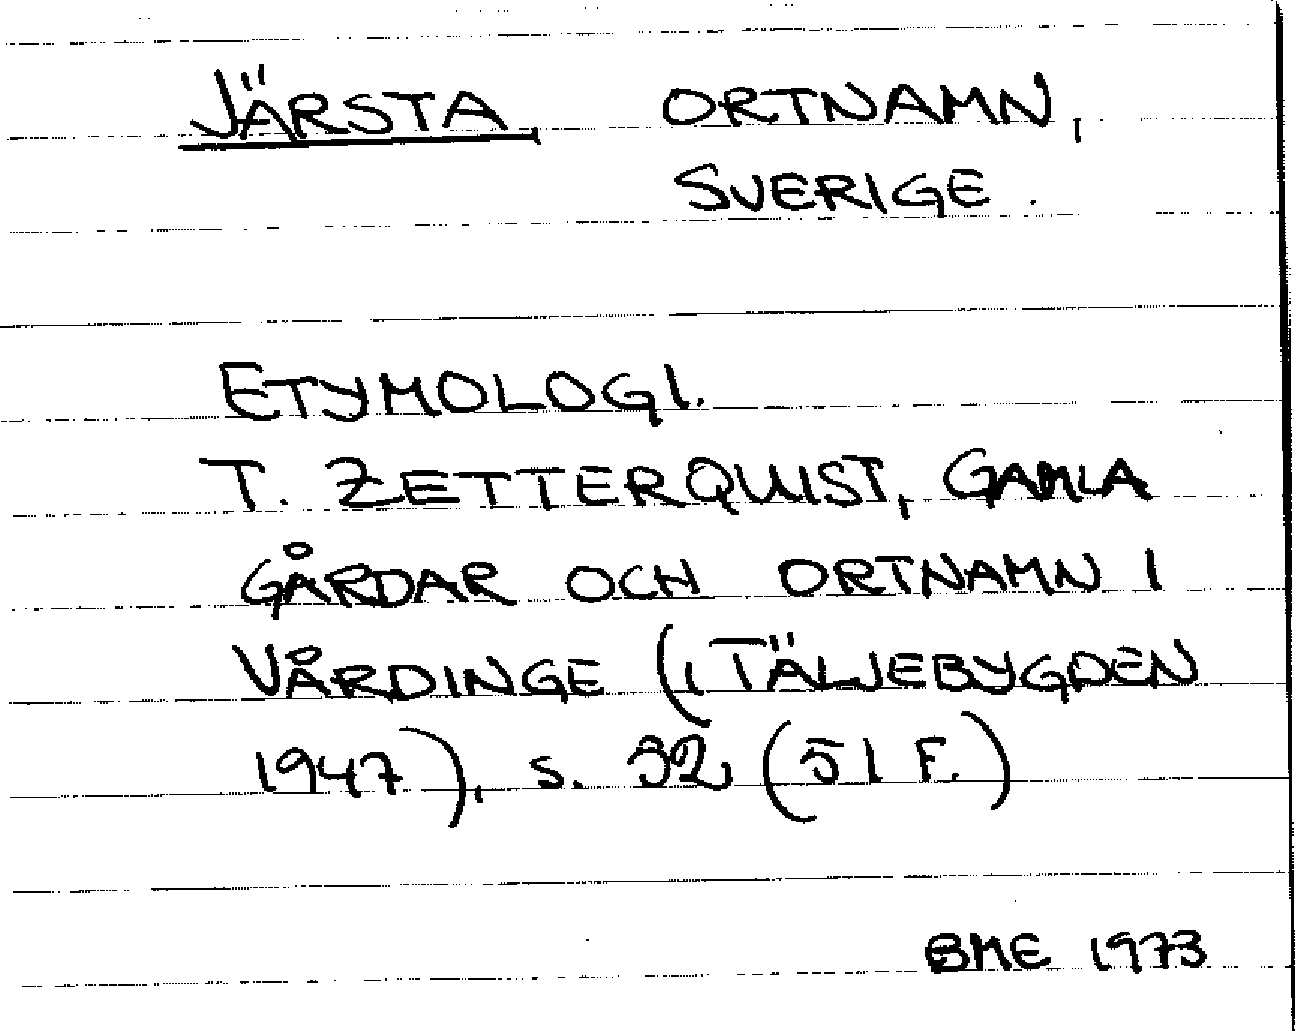 JÄRSTA, ORTNAMN,
SVERIGE.
ETYMOLOGI.
T. ZETTERQUIST, GAMLA
GÅRDAR OCH ORTNAMN I
VÅRDINGE (I TÄLJEBYGDEN
1947), S. 32 (51 F.)
BME 1973